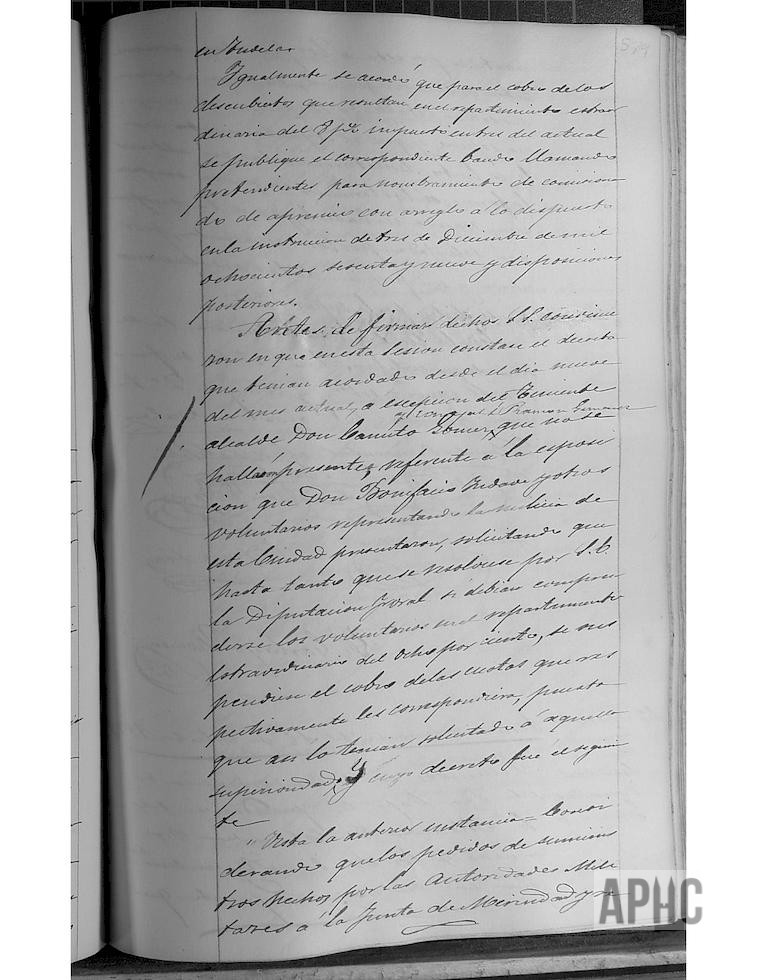 en Tudela.
Ygualmente se acordó que para el cobro de los
descubiertos que resultan en el repartimiento estraor
dinario del 8 pr% impuesto en tres del actual
se publique el correspondiente bando llamando
pretendientes para nombramiento de comisiona
do de apremio con arreglo á lo dispuesto
en la instruccion de tres de Diciembre de mil
ochocientos sesenta y nueve y disposiciones
posteriores.
Antes de firmar dichos S.S. convinie
ron en que en esta sesion constase el decreto
que tenian acordado desde el dia nueve
del mes actual, a escepcion del Teniente
y Concejal D. Ramon
alcalde Don Canuto Gomez, que no se
hallaron presentes, referente á la esposi
cion que Don Bonifacio y otros
voluntarios representando la milicia de
esta Ciudad presentaron, solicitando que
hasta tanto que se resolviese por S.E.
la Diputacion foral si debian compren
derse los voluntarios en el repartimiento
estraordinario del ocho por ciento, se sus
pendiese el cobro de las cuotas que res
pectivamente les correspondiera, puesto
que asi lo tenian solicitado á aquella
superioridad, y cuyo decreto fué el siguien
te
"Vista la anterior instancia = Consi
derando que los pedidos de suminis
tros hechos por las Autoridades Mili
tares á la Junta de Merindad y
APHC